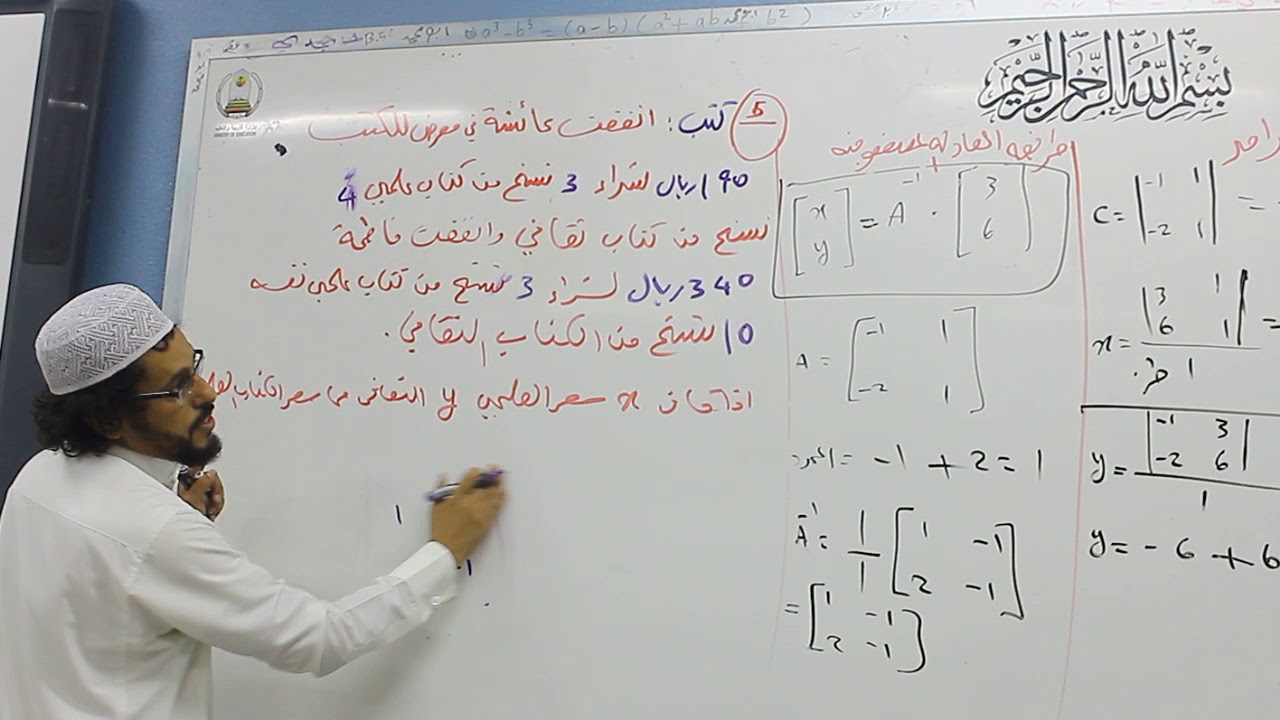 a³ - b³ = (a - b) (a² + ab + b²)
بسم الله الرحمن الرحيم
MINISTRY OF EDUCATION
5 كتب: انفقت عائشة في معرض للكتب
190 ريال لشراء 3 نسخ من كتاب علمي 4
نسخ من كتاب ثقافي وانفقت فاطمة
340 ريال لشراء 3 نسخ من كتاب علمي نفسه
10 نسخ من الكتاب الثقافي.
اذا كان x سعر العلمي y الثقافي
طريقة المعادلة المصفوفية
[x y] = A⁻¹ . [3 6]
A = [-1 1
-2 1]
= -1 + 2 = 1
A⁻¹ = 1/1 [1 -1
2 -1]
= [1 -1
2 -1]
C = |-1 1
-2 1| =
x = |3 1
6 1| =
1
y = |-1 3
-2 6|
1
y = - 6 + 6